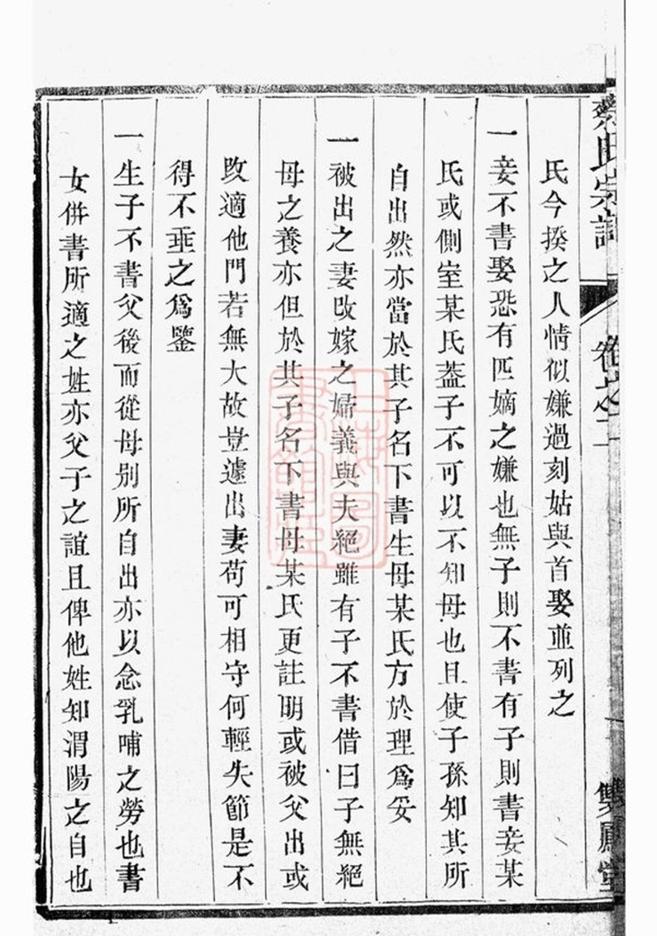 蔡氏宗譜
卷之二
雙鳳堂
氏今揆之人情似嫌過刻姑與首娶並列之
一妾不書娶恐有匹嫡之嫌也無子則不書有子則書妾某
氏或側室某氏葢子不可以不知母也且使子孫知其所
自出然亦當於其子名下書生母某氏方於理爲妥
一被出之妻改嫁之婦義與夫絕雖有子不書借曰子無絕
母之養亦但於其子名下書母某氏更註明或被父出或
改適他門若無大故豈遽出妻苟可相守何輕失節是不
得不垂之爲鑒
一生子不書父後而從母別所自出亦以念乳哺之勞也書
女併書所適之姓亦父子之誼且俾他姓知渭陽之自也